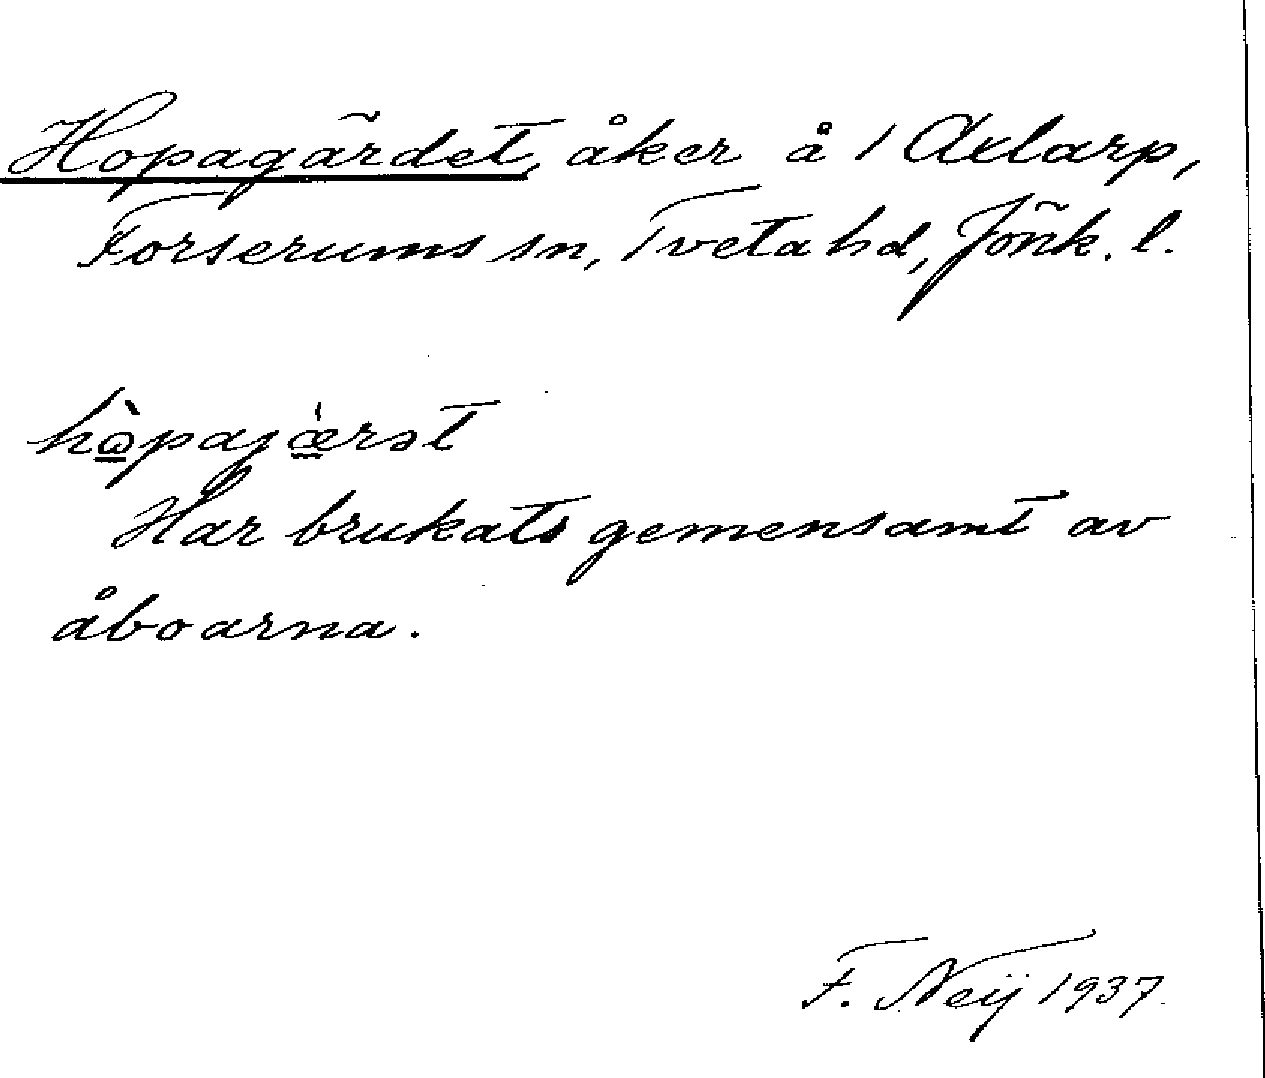 Hopagärdet, åker å 1 Axlarp,
Forserums sn, Tveta hd, Jönk. l.
hòpajæ̀rət
Har brukats gemensamt av
åboarna.
F. Neij 1937.